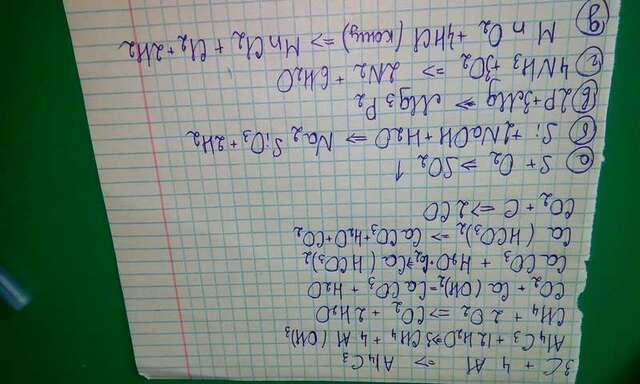 3C + 4Al => Al4C3
Al4C3 + 12H2O => 3CH4 + 4Al(OH)3
CH4 + 2O2 => CO2 + 2H2O
CO2 + Ca(OH)2 = CaCO3 + H2O
CaCO3 + H2O + CO2 => Ca(HCO3)2
Ca(HCO3)2 => CaCO3 + H2O + CO2
CO2 + C => 2CO
а) S + O2 => SO2↑
б) Si + 2NaOH + H2O => Na2SiO3 + 2H2
в) 2P + 3Mg => Mg3P2
г) 4NH3 + 3O2 => 2N2 + 6H2O
д) MnO2 + 4HCl (конц) => MnCl2 + Cl2 + 2H2